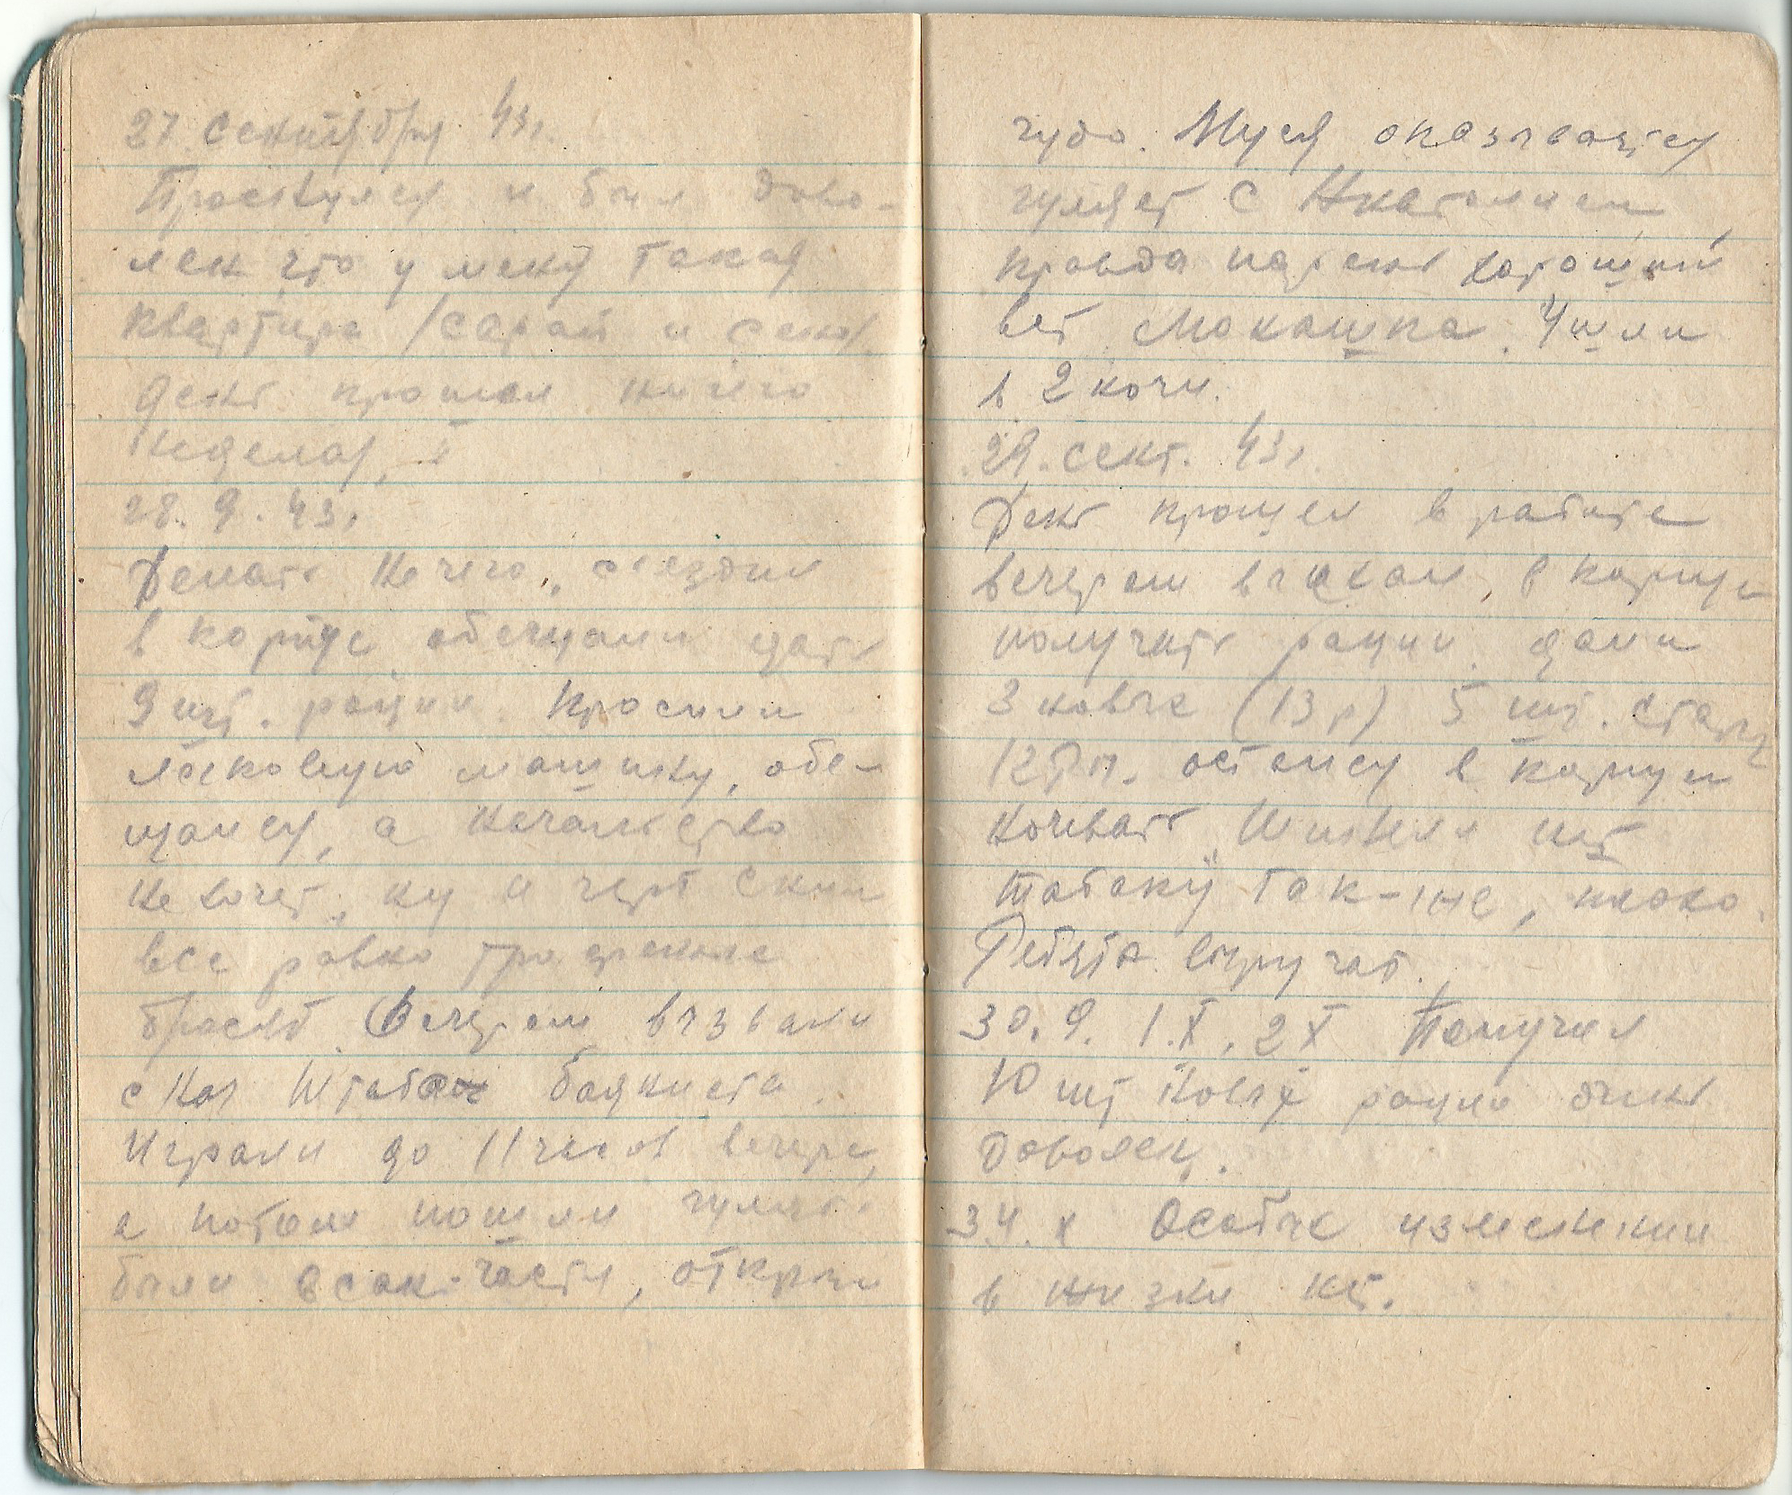 27 сентября 43г.
Проснулся и был дово-
лен что у меня такая
квартира /сарай и сено/
день прошел ничего
неделая.
28. 9. 43г.
Делать нечего, съездил
в корпус обещали дать
9 шт. рации. Просили
легковую машину, обе-
щался, а начальство
не хочет, ну и черт сним
все равно трофейные
бросят. Вечером вызвали
с нач штаба баяниста.
Играли до 11 часов вечера,
а потом пошли гулять.
были в сан. части, открыли
чудо. Муся оказывается
гуляет с Анатолием
правда парень хороший
вет Мокашка. Ушли
в 2 ночи.
29. сент. 43г.
День прошел в работе
вечером выехал, в корпус
получать рации. дали
3 новые (13 р) 5 шт. стары
12РП. остался в корпусе
ночевать
табаку так-же, плохо.
Ребята выручат.
30. 9. 1.X. 2X Получил
10 шт новые рации очень
доволен.
3.4. X Особые изменении
в жизни нет.